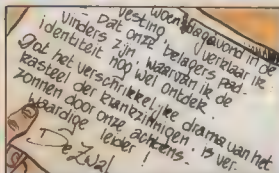 woensdagavond in de
vesting verklaar ik
- Dat onze belagers pad-
vinders zijn waarvan ik de
identiteit nog wel ontdek.
gat het verschrikkelijke drama van het
kasteel der krankzinnigen is ver-
zonnen door onze achtens-
waardige leider!
De Zwal